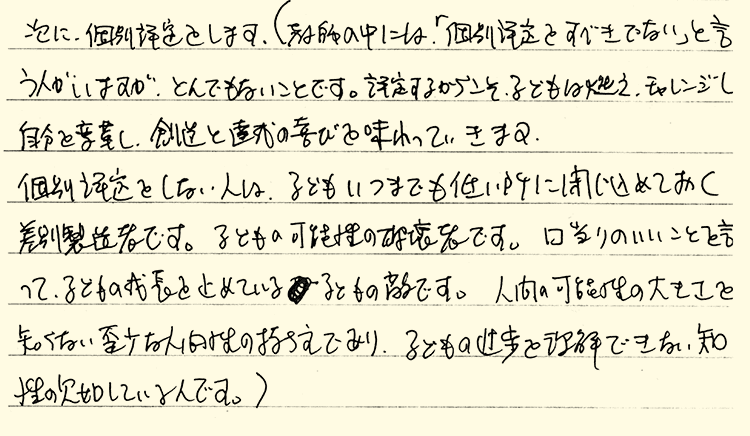 次に、個別評定をします。(教師の中には、「個別評定をすべきでない」と言
う人がいますが、とんでもないことです。評定するからこそ、子どもは燃え、チャレンジし
自分を変革し、創造と達成の喜びを味わっていきます。
個別評定をしない人は、子どもいつまでも低い所に閉じ込めておく
差別製造者です。子どもの可能性の破壊者です。口当りのいいことを言
って、子どもの成長を止めている子どもの敵です。人間の可能性の大きさを
知らない歪少な人間性の持ち主であり、子どもの進歩を理解できない知
性の欠如している人です。)